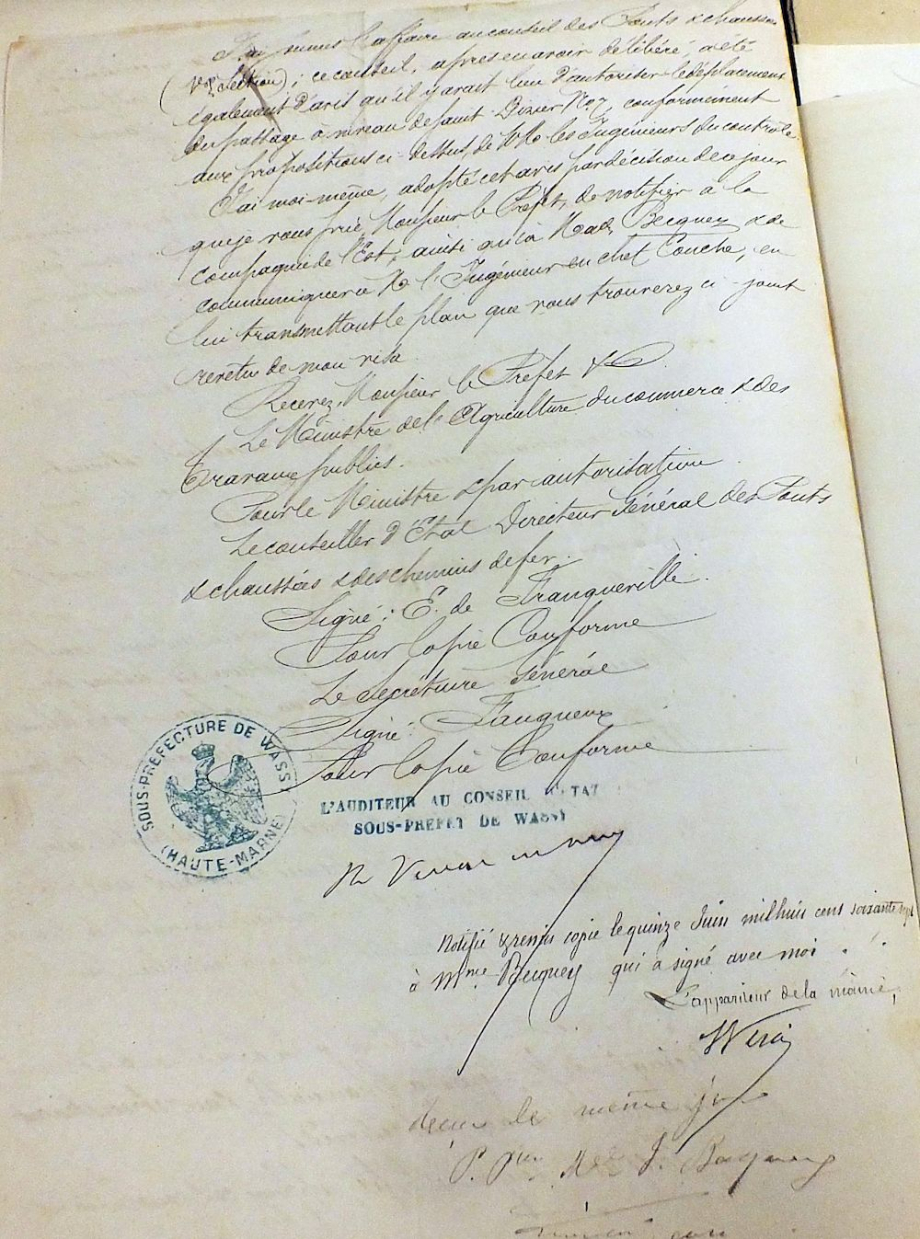 J'ai soumis l'affaire au conseil des Ponts & chaussées
(Section); ce conseil, après en avoir délibéré, a été
également d'avis qu'il y avait lieu d'autoriser le déplacement
du passage à niveau de Saint-Dizier No 7, conformément
aux propositions ci-dessus, de MM. les Ingénieurs du contrôle
J'ai moi-même, adopté cet avis par décision de ce jour
que je vous prie Monsieur le Préfet, de notifier à la
compagnie de l'Est, ainsi qu'à Mad. Becquey & de
communiquer à M. l'Ingénieur en chef Couche, en
lui transmettant le plan que vous trouverez ci-joint
revêtu de mon visa.
Recevez, Monsieur le Préfet &c
Le Ministre de l'Agriculture du commerce & des
Travaux publics.
Pour le Ministre & par autorisation
Le conseiller d'Etat Directeur Général des Ponts
& chaussées & des chemins de fer.
Signé: E. de Franqueville.
Pour Copie Conforme
Le Secrétaire Général
Signé:
Pour Copie Conforme
SOUS-PREFECTURE DE WASSY
(HAUTE-MARNE)
L'AUDITEUR AU CONSEIL D'ETAT
SOUS-PREFET DE WASSY
Notifié & remis copie le quinze Juin mil huit cent soixante sept
à Mme Becquey qui a signé avec moi
L'appariteur de la mairie,
même jour
P. J. Becquey